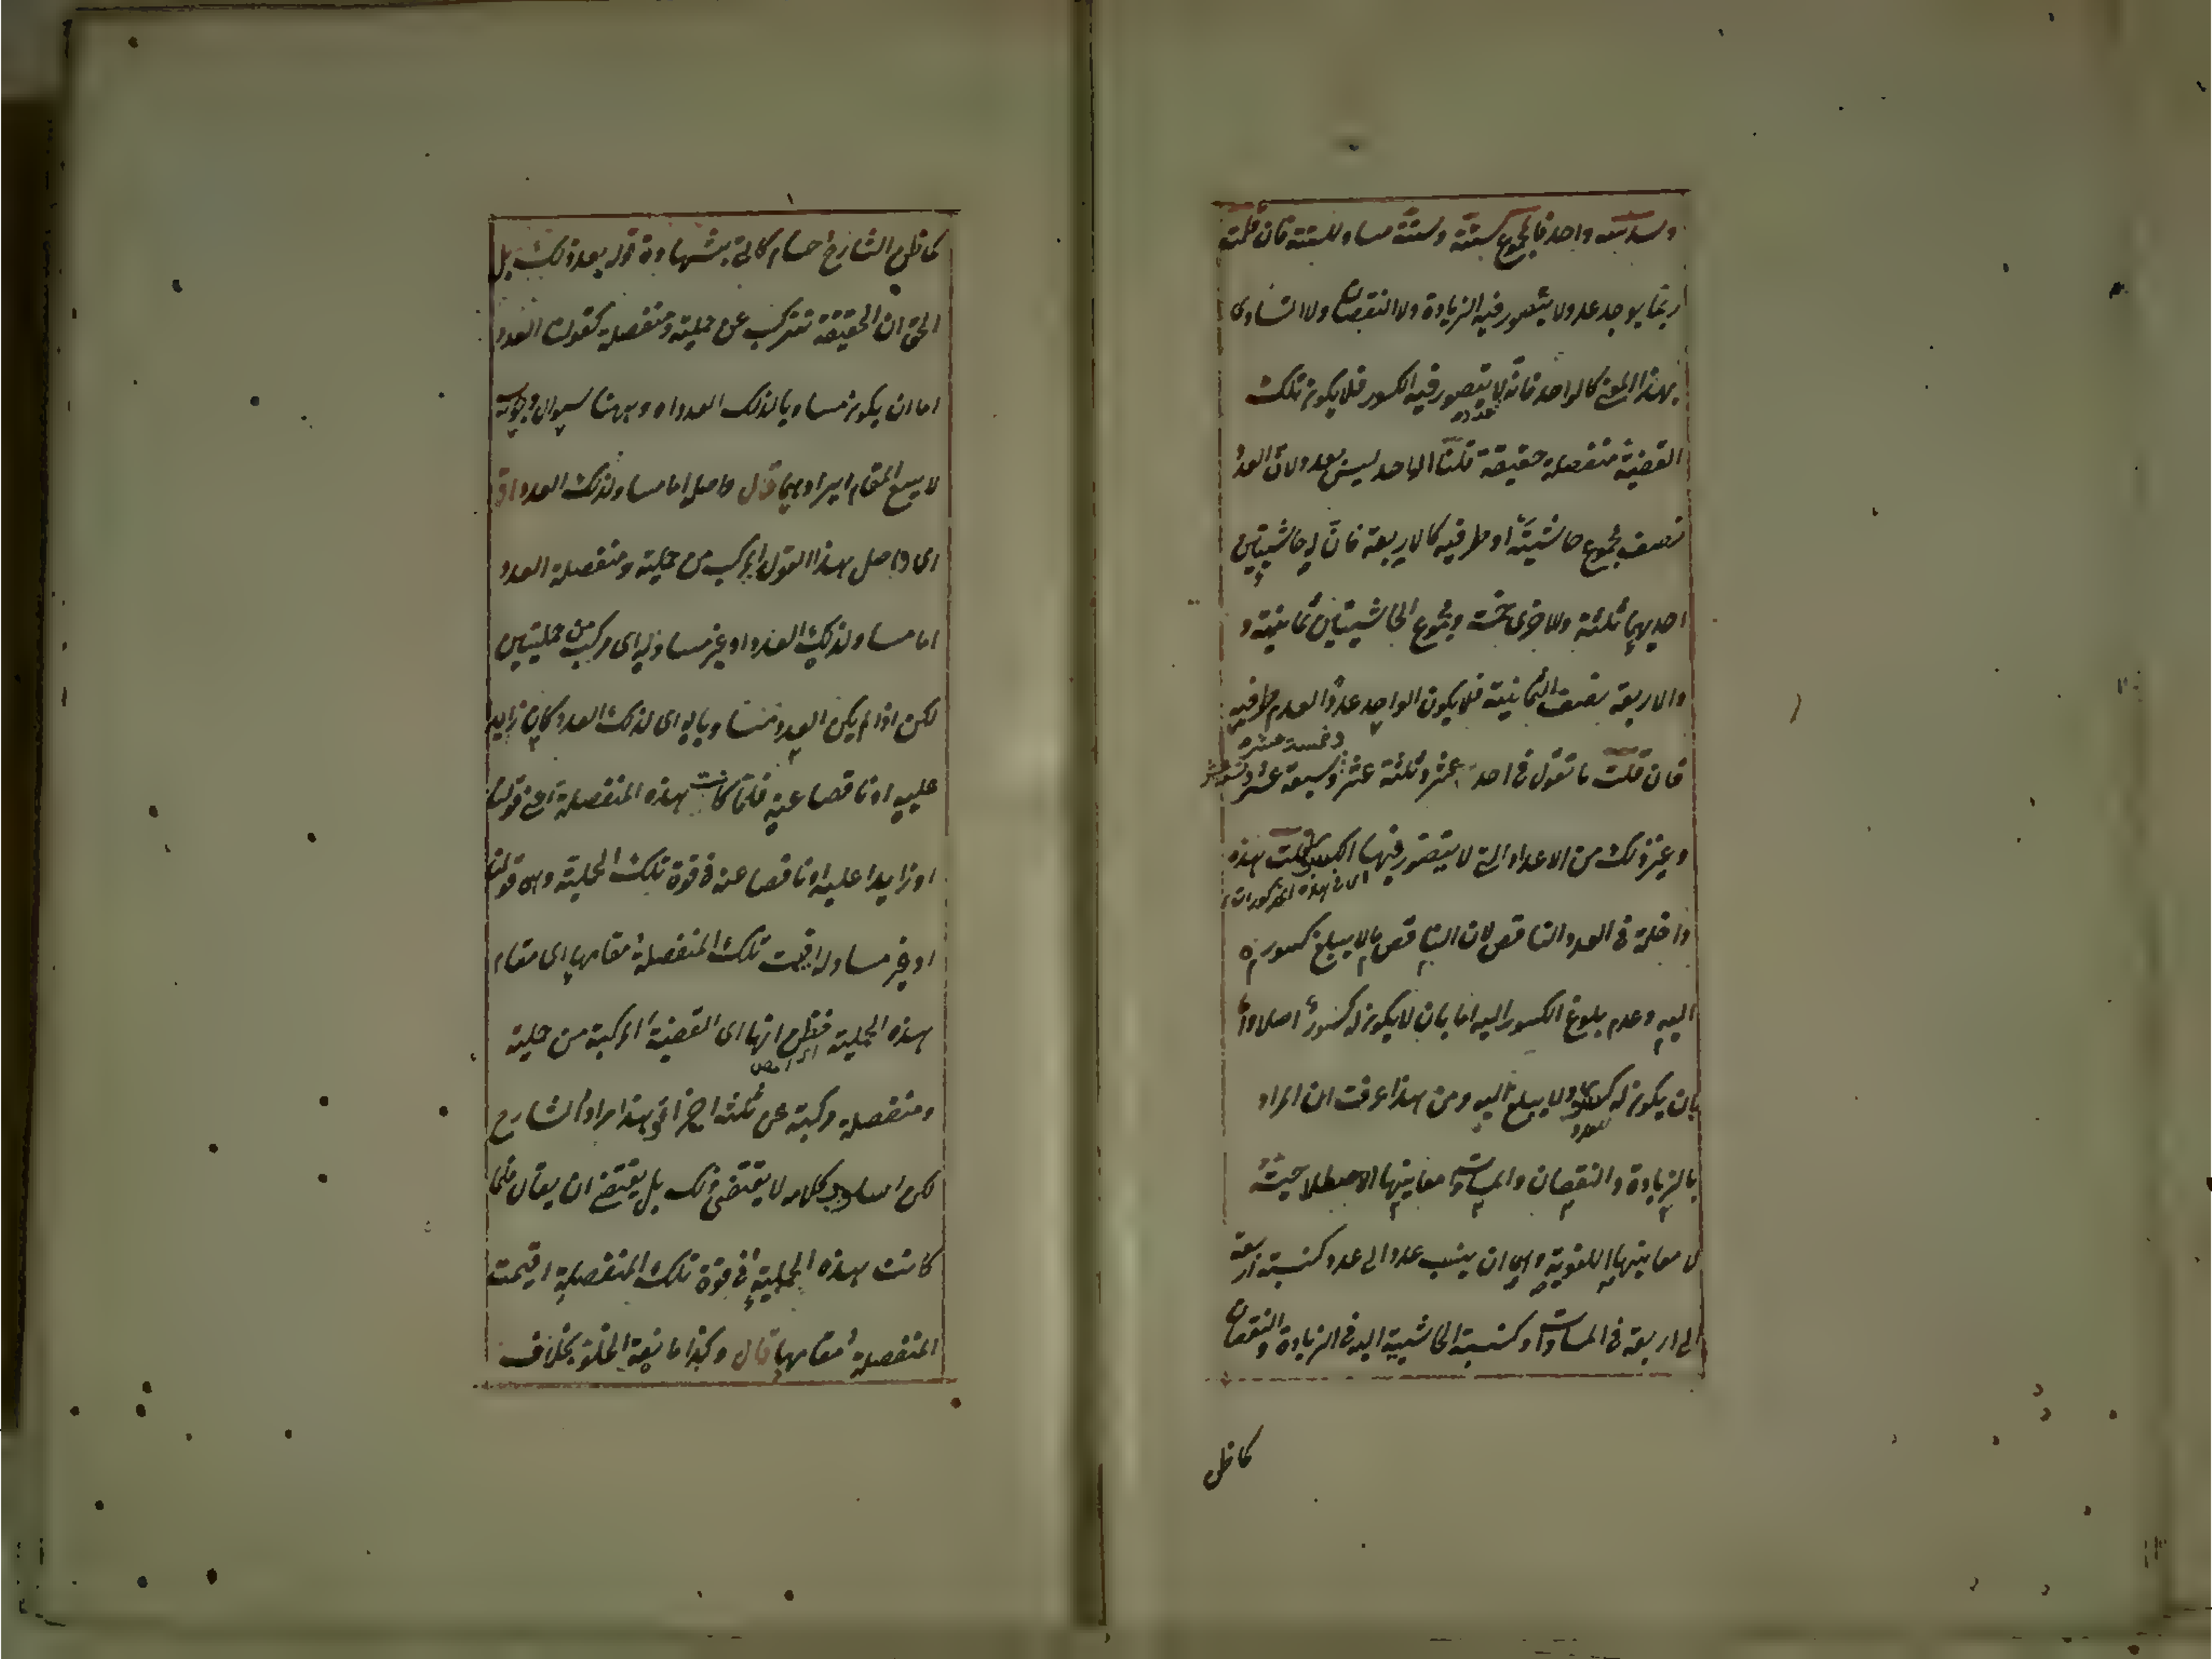 وسدسه واحد فالمجموع ستة وستة مساو للستة فان قلت
ربما يوجد عدد لا يتصور فيه الزيادة ولا النقصان ولا التساوى
بهذا المعنى كالواحد فانه لا يتصور فيه الكسور فلا يكون تلك
القضية منفصلة حقيقة قلنا الواحد ليس بعدد لان العدد
نصف مجموع حاشيتيه او طرفيه كالاربعة فان له حاشيتين
احديهما ثلثة والاخرى خمسة ومجموع الحاشيتين ثمانية و
والاربعة نصف الثمانية فلا يكون الواحد عددا لعدم طرفيه
وخمسة عشر
فان قلت ما تقول فى احد عشر وثلثة عشر وسبعة عشر وتسعة عشر
وغير ذلك من الاعداد التى لا يتصور فيها الكسر قلت هذه
اى فى هذه المذكورات
داخلة فى العدد الناقص لان الناقص ما لا يبلغ كسوره
اليه وعدم بلوغ الكسور اليه اما بان لا يكون له كسور اصلا واما
بان يكون له كسور ولا يبلغ اليه ومن هذا عرفت ان المراد
بالزيادة والنقصان والمساوات معانيها الاصطلاحية
لا معانيها اللغوية وهى ان ينسب عدد الى عدد كنسبة اربعة
الى اربعة فى المساوات وكنسبة الحاشية اليه فى الزيادة والنقصان
كما ظن
كما ظن الشارح حسام كاتى بشهادة قوله بعد ذلك بل
الحق ان الحقيقة تتركب عن حملية ومنفصلة كقولنا العدد
اما ان يكون مساويا لذلك العدد اه وههنا سؤال وجوابه
لا يسع المقام ايرادهما قال حاصله اما مساو لذلك العدد اقول
اى حاصل هذا القول المركب من حملية ومنفصلة العدد
اما مساو لذلك العدد او غير مساو له اى مركب من حمليتين
لكن اذا لم يكن العدد مساويا له اى لذلك العدد كان زايدا
عليه او ناقصا عنه فلما كانت هذه المنفصلة اعنى قولنا
او زايدا عليه او ناقصا عنه فى قوة تلك الحملية وهى قولنا
او غير مساو له اقيمت تلك المنفصلة مقامها اى مقام
هذه الحملية فظن انها اى القضية المركبة من حملية
ومنفصلة مركبة عن ثلثة اجزاء هذا مراد الشارح
لكن اسلوب كلامه لا يقتضى ذلك بل يقتضى ان يقال فلما
كانت هذه الحملية فى قوة تلك المنفصلة اقيمت
المنفصلة مقامها قال وكذا مانعة الخلو بخلاف